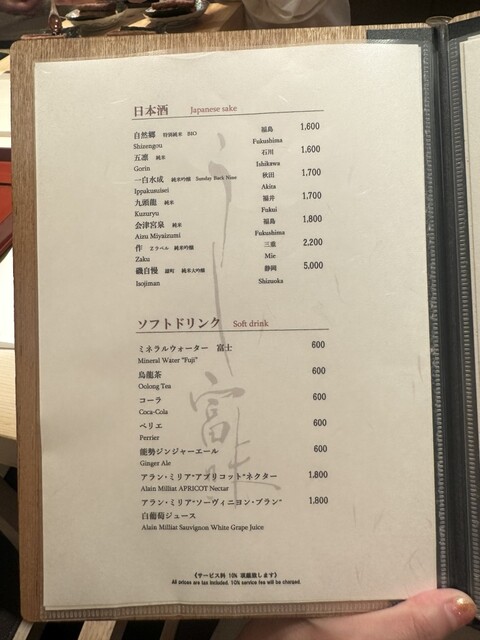 日本酒 Japanese sake
自然郷 特別純米 BIO 福島 1,600
Shizengou Fukushima
五凛 純米 石川 1,600
Gorin Ishikawa
一白水成 純米吟醸 Sunday Back Nine 秋田 1,700
Ippakusuisei Akita
九頭龍 純米 福井 1,700
Kuzuryu Fukui
会津宮泉 純米 福島 1,800
Aizu Miyaizumi Fukushima
作 Zラベル 純米吟醸 三重 2,200
Zaku Mie
磯自慢 雄町 純米大吟醸 静岡 5,000
Isojiman Shizuoka
ソフトドリンク Soft drink
ミネラルウォーター 富士 600
Mineral Water "Fuji"
烏龍茶 600
Oolong Tea
コーラ 600
Coca-Cola
ペリエ 600
Perrier
能勢ジンジャーエール 600
Ginger Ale
アラン・ミリア"アプリコット"ネクター 1,800
Alain Milliat APRICOT Nectar
アラン・ミリア"ソーヴィニヨン・ブラン" 1,800
白葡萄ジュース
Alain Milliat Sauvignon White Grape Juice
《サービス料 10% 頂戴致します》
All prices are tax included. 10% service fee will be charged.